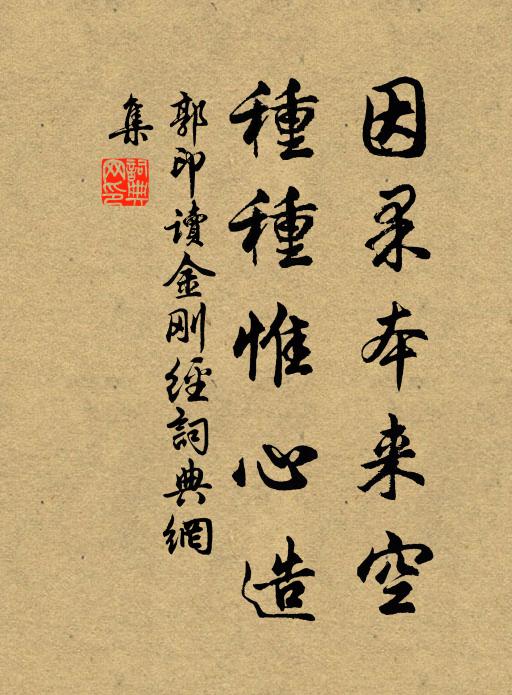 因果本来空
種種惟心造
郭印讀金剛經詞典網
集
詞典
网印